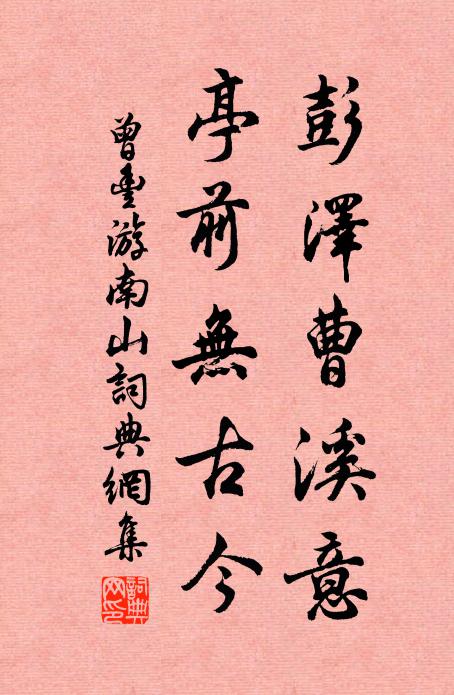 彭澤曹溪意
亭前無古今
曾豐游南山詞典網集
詞典網印